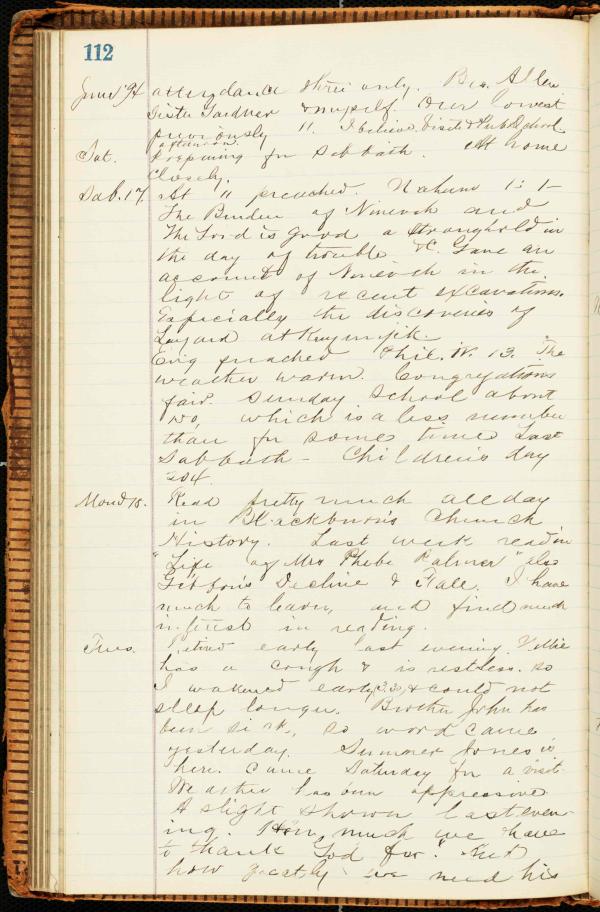 112
June '94 attendance three only. Bro. Allen
Sister Gardner & myself. Our lowest
previously 11. I believe. Visited Pub. School
afternoon.
Sat. Preparing for Sabbath. At home
closely.
Sab. 17. At " preached. Nahum 1: 1-
The Burden of Nineveh and
The Lord is good a stronghold in
the day of trouble &c. Gave an
account of Nineveh in the
light of recent excavations.
Especially the discoveries of
Layard at Kuyunjik.
Evig preached Phil. IV. 13. The
weather warm. Congregations
fair. Sunday School about
which is a less number
than for some time Last
Sabbath - Children's day
204.
Mond 18. Read pretty much all day
in Blackburn's Church
History. Last week read in
"Life of Mrs Phebe Palmer" also
Gibbon's Decline & Fall. I have
much to learn, and find much
interest in reading.
Tues. Retired early last evening. Nellie
has a cough & is restless. So
I wakened early (3.30) & could not
sleep longer. Brother John has
been sick, so word came
yesterday. Summer Jones is
here. Came Saturday for a visit.
Weather has been oppressive
A slight shower last even-
ing. How much we have
to thank God for. And
how greatly we need his